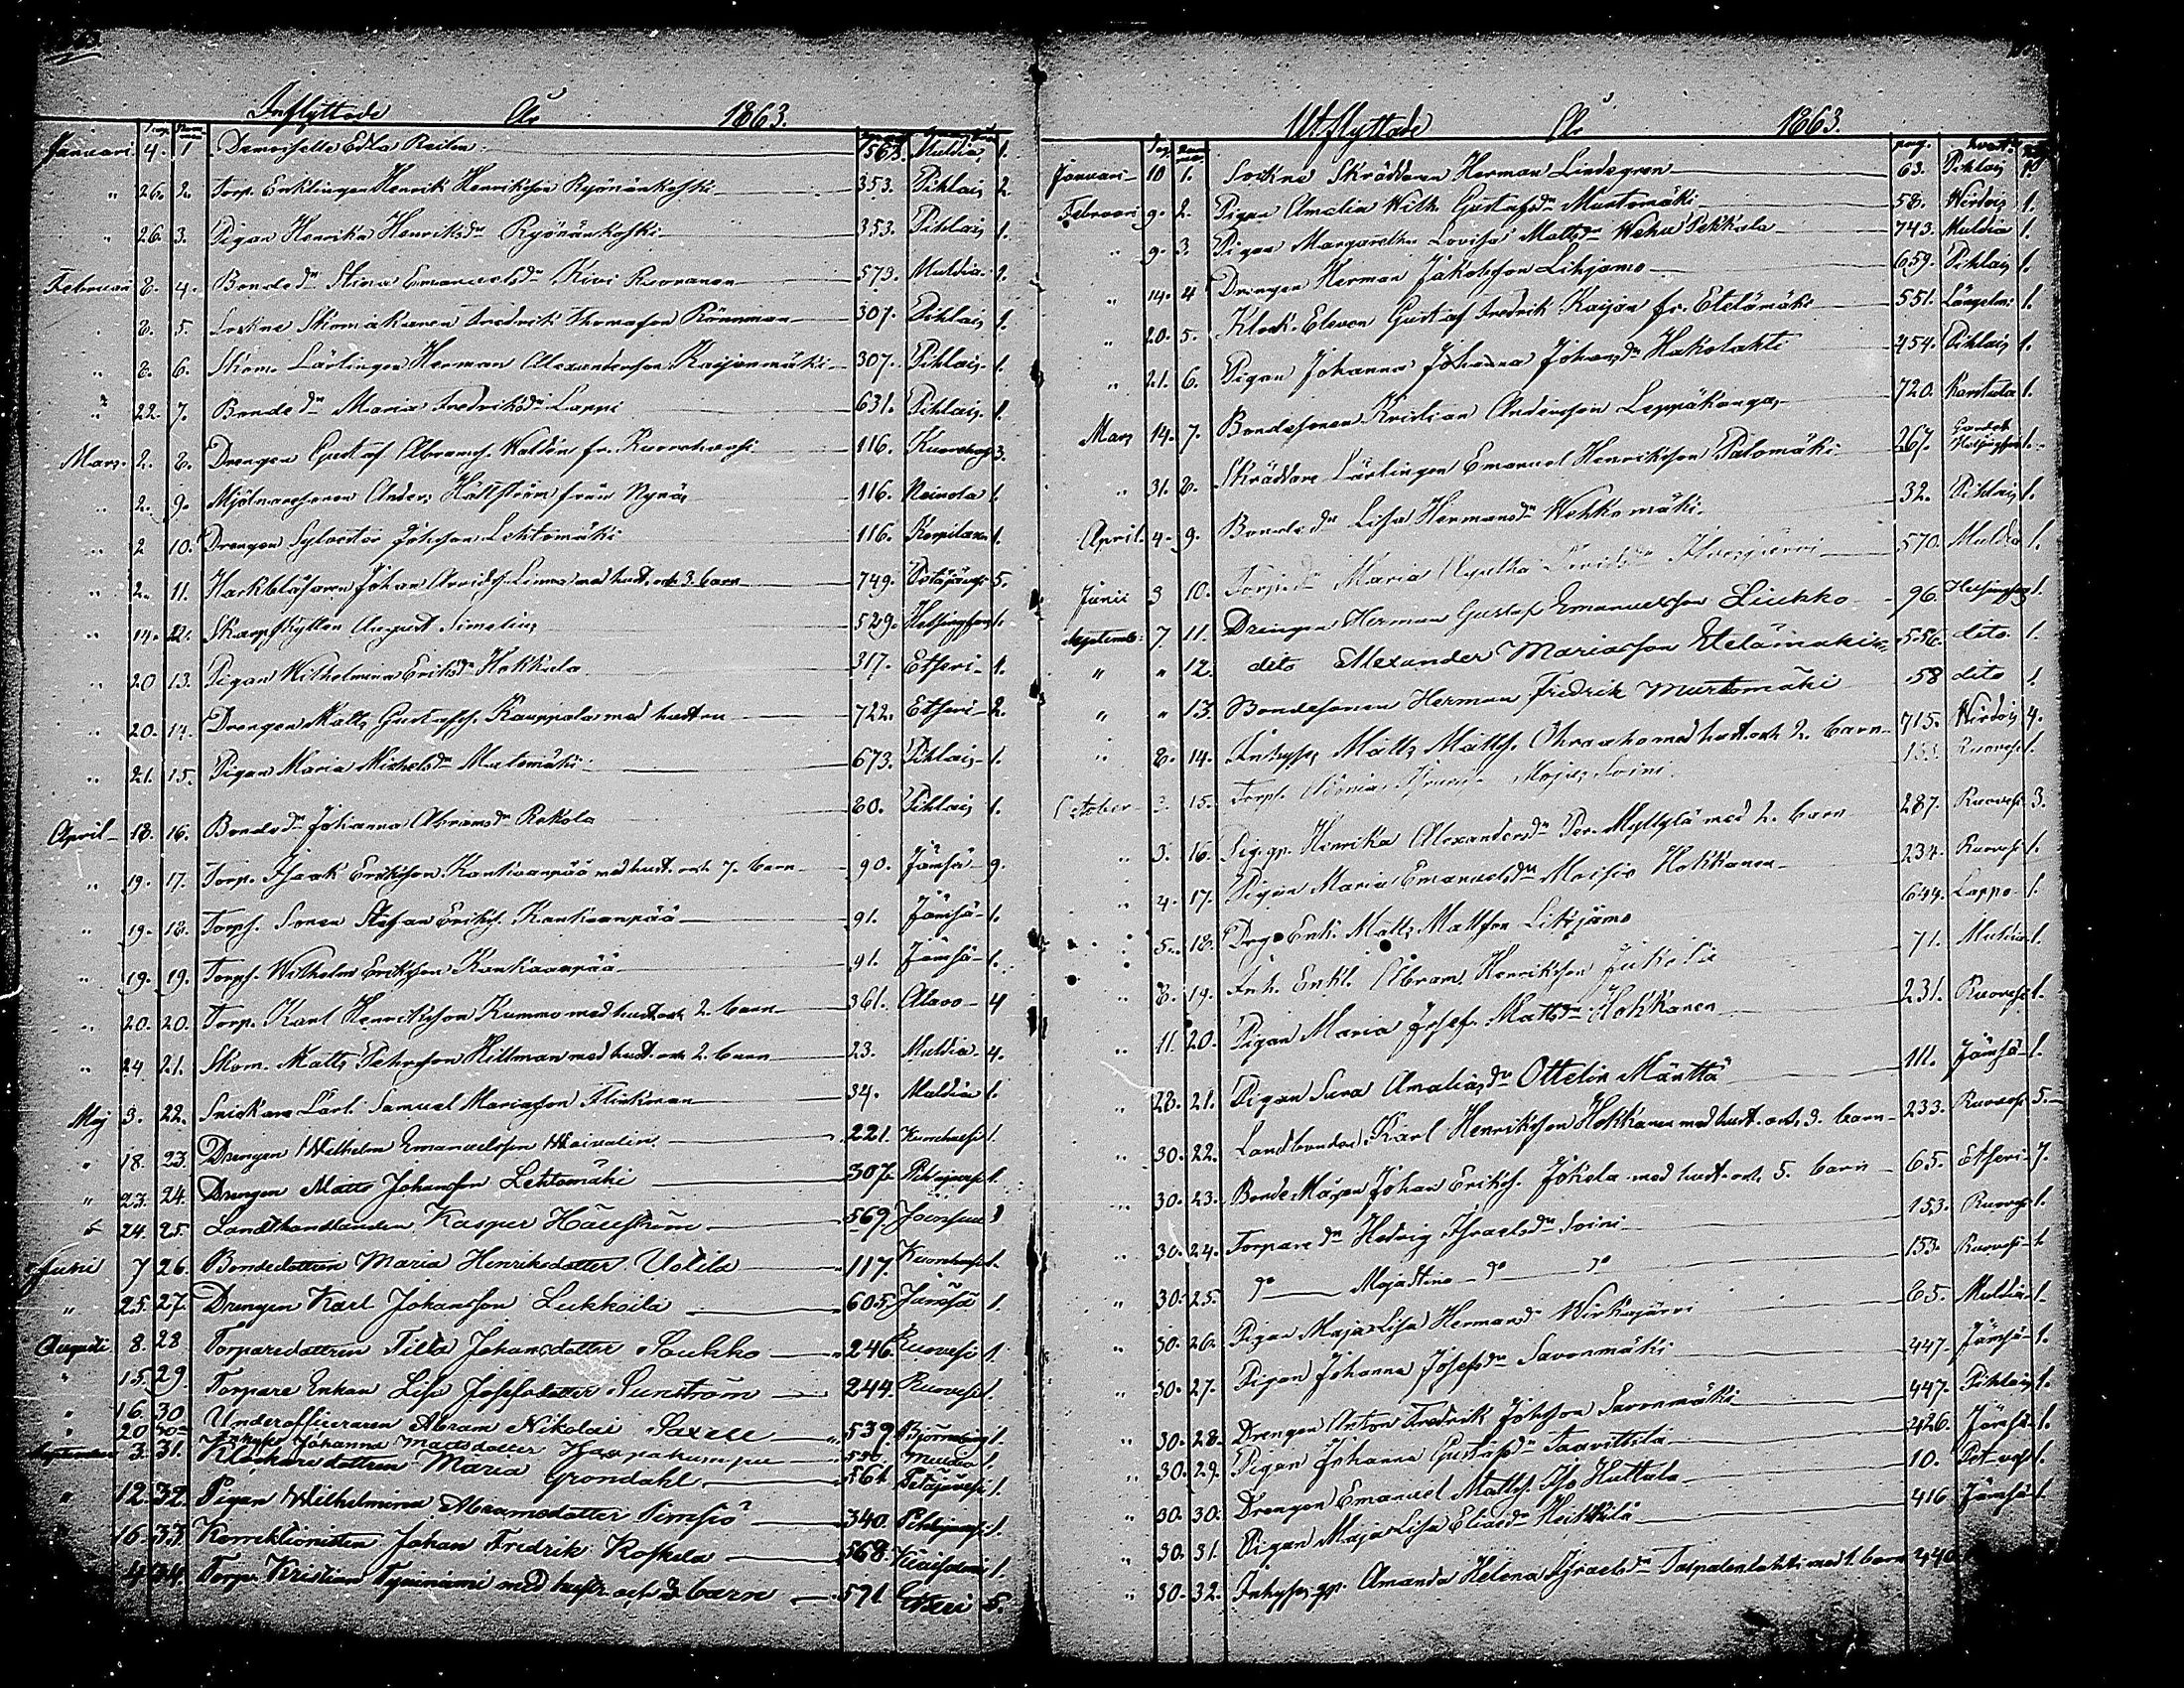 Inflyttade År 1863.
Januari 4. 1 Demoiselle Edla Reilin 756. Multia 1.
" 26. 2. Torp. Enklingen Henrik Henriksson Ryönänkoski 353. Pihlais 2.
" 26. 3. Pigan Henrika Henriksdr Ryönänkoski 353. Pihlais 1.
Februari 8. 4. Bondedr Stina Emanuelsdr Kivi Ruoranen 573. Multia 1.
" 8. 5. Sockne Skomakaren Fredrik Thomasson Rönnman 307. Pihlais 1.
" 8. 6. Skom. Lärlingen Herman Alexandersson Kaijanmäki 307. Pihlais 1.
" 22. 7. Bondedr Maria Fredriksdr Lappi 631. Pihlais 1.
Mars 2. 8. Drengen Gustaf Abramss. Waldén fr. Kuorehvesi 116. Kuorehves 3.
" 2. 9. Mjölnaresonen Anders Hällström från Nynäs 116. 1.
" 2 10. Drengen Sylvester Johsson Lehtomäki 116. Korpilax 1.
" 2. 11. Johan Arvidss. Linna med hust. och 3. barn 749. Petäjävesi 5.
" 14. 12. Skarpskytten August Simelius 529. Helsingfors 1.
" 20 13. Pigan Wilhelmina Eriksdr Hokkala 317. Etseri 1.
" 20. 14. Drengen Matts Gustafss. Kauppala med hustru 722. Etseri 2.
" 21. 15. Pigan Maria Michelsdr Mustomäki 673. Pihlais 1.
April 18. 16. Bondedr Johanna Abramsdr Rekola 80. Pihlais 1.
" 19. 17. Torp. Isaak Eriksson Kankaanpää med hust. och 7. barn 90. Jämsä 9.
" 19. 18. Torps. Sonen Stefan Erikss. Kankaanpää 91. Jämsä 1.
" 19. 19. Torps. Wilhelm Eriksson Kankaanpää 91. Jämsä 1.
" 20. 20. Torp. Karl Henriksson Kummo med hust. och 2. barn 361. Alavo 4
" 24 21. Skom. Matts Pehrsson Hillman med hust. och 2. barn 23. Multia 4.
Maj 3. 22. Snickare Lärl. Samuel Mariasson Flinkman 34. Multia 1.
" 18. 23. Drengen Wilhelm Emanuelsson 221. Kuorehvesi 1.
" 23. 24. Drengen Matts Johansson Lehtomäki 307. Pihlajavesi 1.
" 24. 25. Landthandlanden Kasper Hällström 569. Joensuu 1
Juni 7 26. Bondedottren Maria Henriksdotter Uotila 117. Kuorehvesi 1.
" 25. 27. Drengen Karl Johansson Lukkoila 605. Jämsä 1.
Augusti 8. 28 Torparedottren Tilda Johansdotter Saukko 246. Ruovesi 1.
" 15. 29. Torpare Enkan Lisa Josefsdotter Sunström 244. Ruovesi 1.
" 16. 30 Underofficeraren Abram Nikolai Saxell 539. Björneborg 1.
" 20 Inhyses Johanna Mattsdotter 550. Multia 1.
September 3. 31. Klockaredottren Maria Grondahl 561. Petäjävesi 1.
" 12. 32. Pigan Wilhelmina Abramsdotter Simsiö 340. Pihlajavesi 1.
16. 33. Korrektionisten Johan Fredrik Koskela 568. 1.
34. Torp. Kristian Tyrinämi med hustr. och 3 barn 571 Etseri 5.
Utflyttade År 1863.
pag.
Januari 10 1. Sockne Skräddaren Herman Lindegren 63. Pihlais
Februari 9. 2. Pigan Amalia Wilh. Gustafsdr Muntomäki 58. Wirdois 1.
" 9. 3. Pigan Margaretha Lovisa Mattsdr Wehu Pekkala 743. Multia 1.
" 14. 4 Drengen Herman Jakobsson Likjamo 659. Pihlais 1.
" 20. 5. Klock. Eleven Gustaf Fredrik Kaijan fr. Etelämäki 551. Längelm. 1.
" 21. 6. Pigan Johanna Johanna Johansdr Hakolahti 454. Pihlais 1.
Mars 14. 7. Bondesonen Kristian Andersson Leppäkangas 720. Karstula 1.
" 31. 8. Skräddare Lärlingen Emanuel Henriksson Palomäki 267. Helsingfors 1.
April 4. 9. Bondedr Lisa Hermansdr Wehkomäki 32. Pihlais 1.
Junii 3 10. Torparedr Maria Agatha 570. Multia 1.
September 7 11. Drengen Herman Gustaf Emanuelsson Liukko 96. Helsingfors 1.
" " 12. dito Alexander Mariasson Etelämäki 556. dito 1.
" " 13. Bondesonen Herman Fredrik Murtomäki 58 dito 1.
" 8. 14. Inhyses Matts Mattss. Ohraaho med hust. och 2. barn 715. Wirdois 4.
October 3. 15. Soini 153. Ruovesi 1.
" 3. 16. Henrika Alexandersdr Myllylä med 2. barn 287. Ruovesi 3.
" 4. 17. Pigan Maria Emanuelsdr Moisio Hokkanen 234. Ruovesi 1.
" 5. 18. Drg. Enk. Matts Mattson Likjamo 644. Lappo 1.
" 8. 19. Inh. Enkl. Abram Henriksson Jukola 71. Multia 1.
" 11. 20. Pigan Maria Josef. Mattsdr Hokkanen 231. Ruovesi 1.
" 28. 21. Pigan Sara Amaliasdr Ottelin Mänttä 111. Jämsä 1.
" 30. 22. Landbonden Karl Henriksson Hokkanen med hust. och 3. barn 233. Ruovesi 5.
" 30. 23. Bonde Mågen Johan Erikss. Jokela med hust. och 5. barn 65. Etseri 7.
" 30. 24. Torparedr Hedvig Israelsdr Soini 153. Ruovesi 1.
" 30. 25. do Maja Stina do do 153. Ruovesi 1.
" 30. 26. Pigan Maja Lisa Hermansdr Wirkajärvi 65. Multia 1.
" 30. 27. Pigan Johanna Josefsdr Savonmäki 447. Jämsä 1.
" 30. 28. Drengen Anton Fredrik Johsson Savonmäki 447. Pihlais 1.
" 30. 29. Pigan Johanna Gustafsdr Taavittila 426. Jämsä 1.
" 30. 30. Drengen Emanuel Mattss. Iso Huttula 10. 1.
" 30. 31. Pigan Maja Lisa Eliaedr Heikkilä 416 Jämsä 1.
" 30. 32. Inhyses Amanda Helena Israelsdr med 1. barn 440